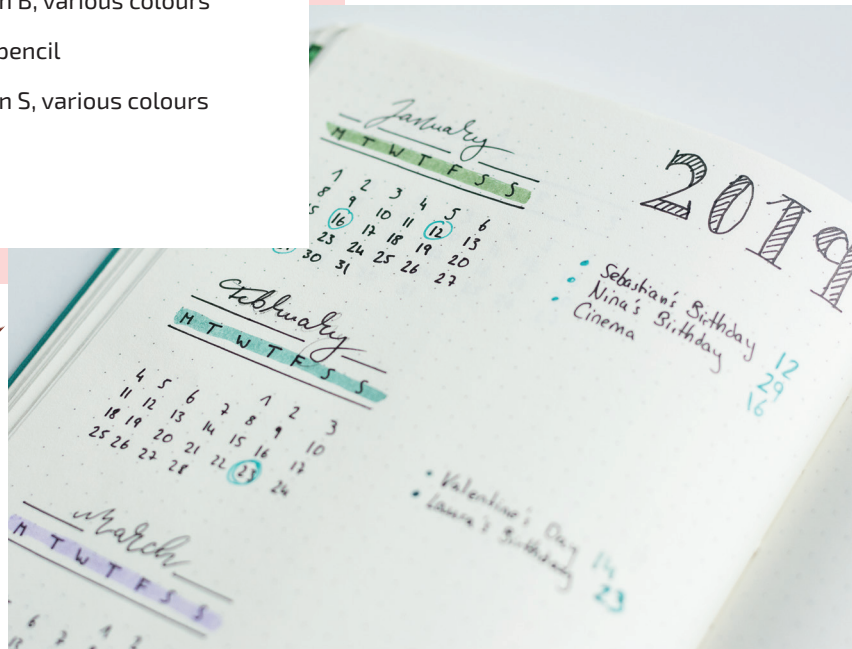 n B, various colours
pencil
n S, various colours
January
M T W T F S S
1 2 3 4 5 6
8 9 10 11 12 13
16 17 18 19 20
23 24 25 26 27
30 31
2019
Sebastian's Birthday 12
Nina's Birthday 29
Cinema 16
February
M T W T F S S
1 2 3
4 5 6 7 8 9 10
11 12 13 14 15 16 17
18 19 20 21 22 23 24
25 26 27 28
Valentine's Day 14
Laura's Birthday 23
March
M T W T F S S